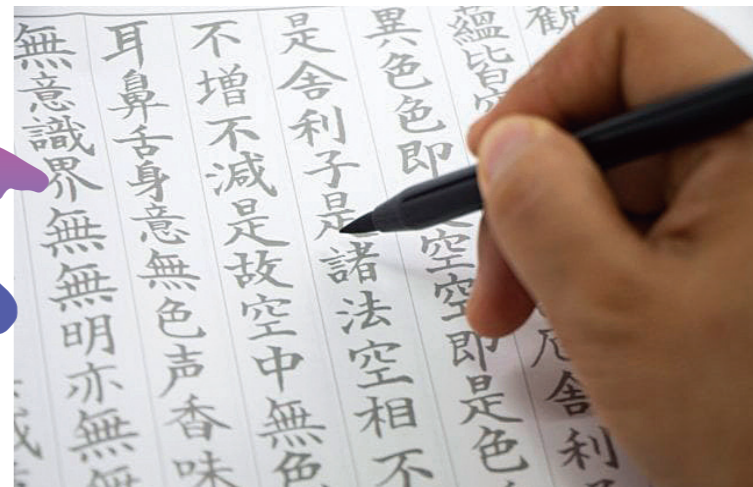 観
蘊皆空厄舎利
異色色即空空即是色
是舎利子是諸法空相不
不増不減是故空中無色
耳鼻舌身意無色声香味
無意識界無無明亦無無